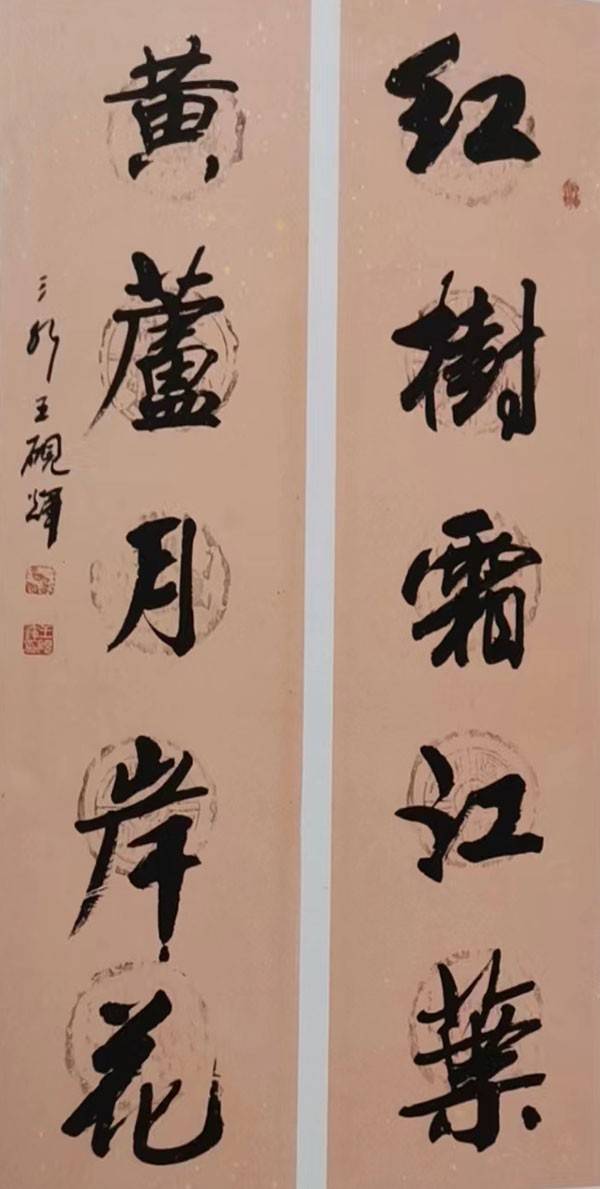 红樹霜江葉
黃蘆月岸花
王硯輝